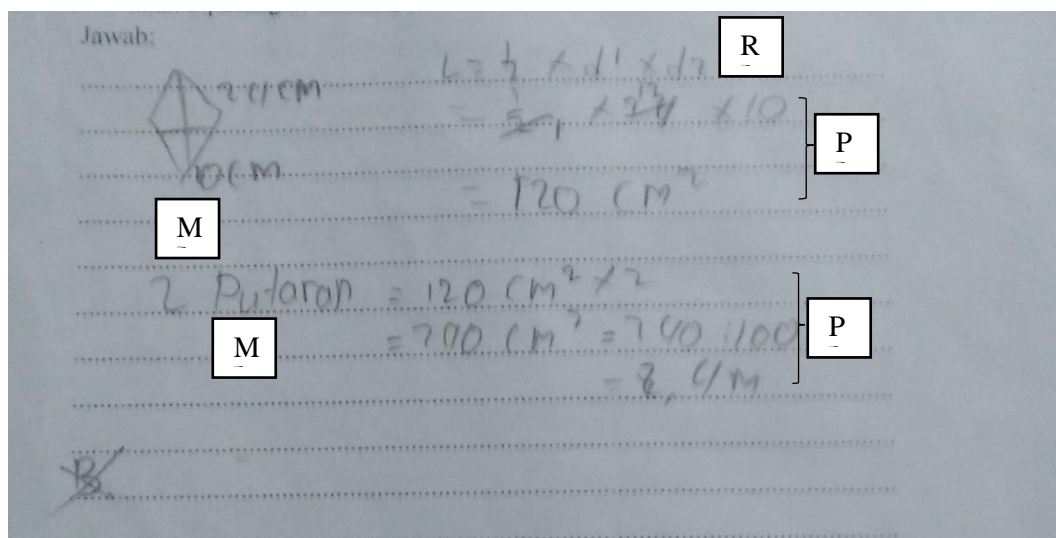 Jawab:
24 cm
10 cm
L = 1/2 x d1 x d2
R
= 1/2 1 x 24 12 x 10
P
= 120 cm²
M
2 Putaran = 120 cm² x 2
M
= 240 cm² = 240 : 100
P
= 2,4 m
B